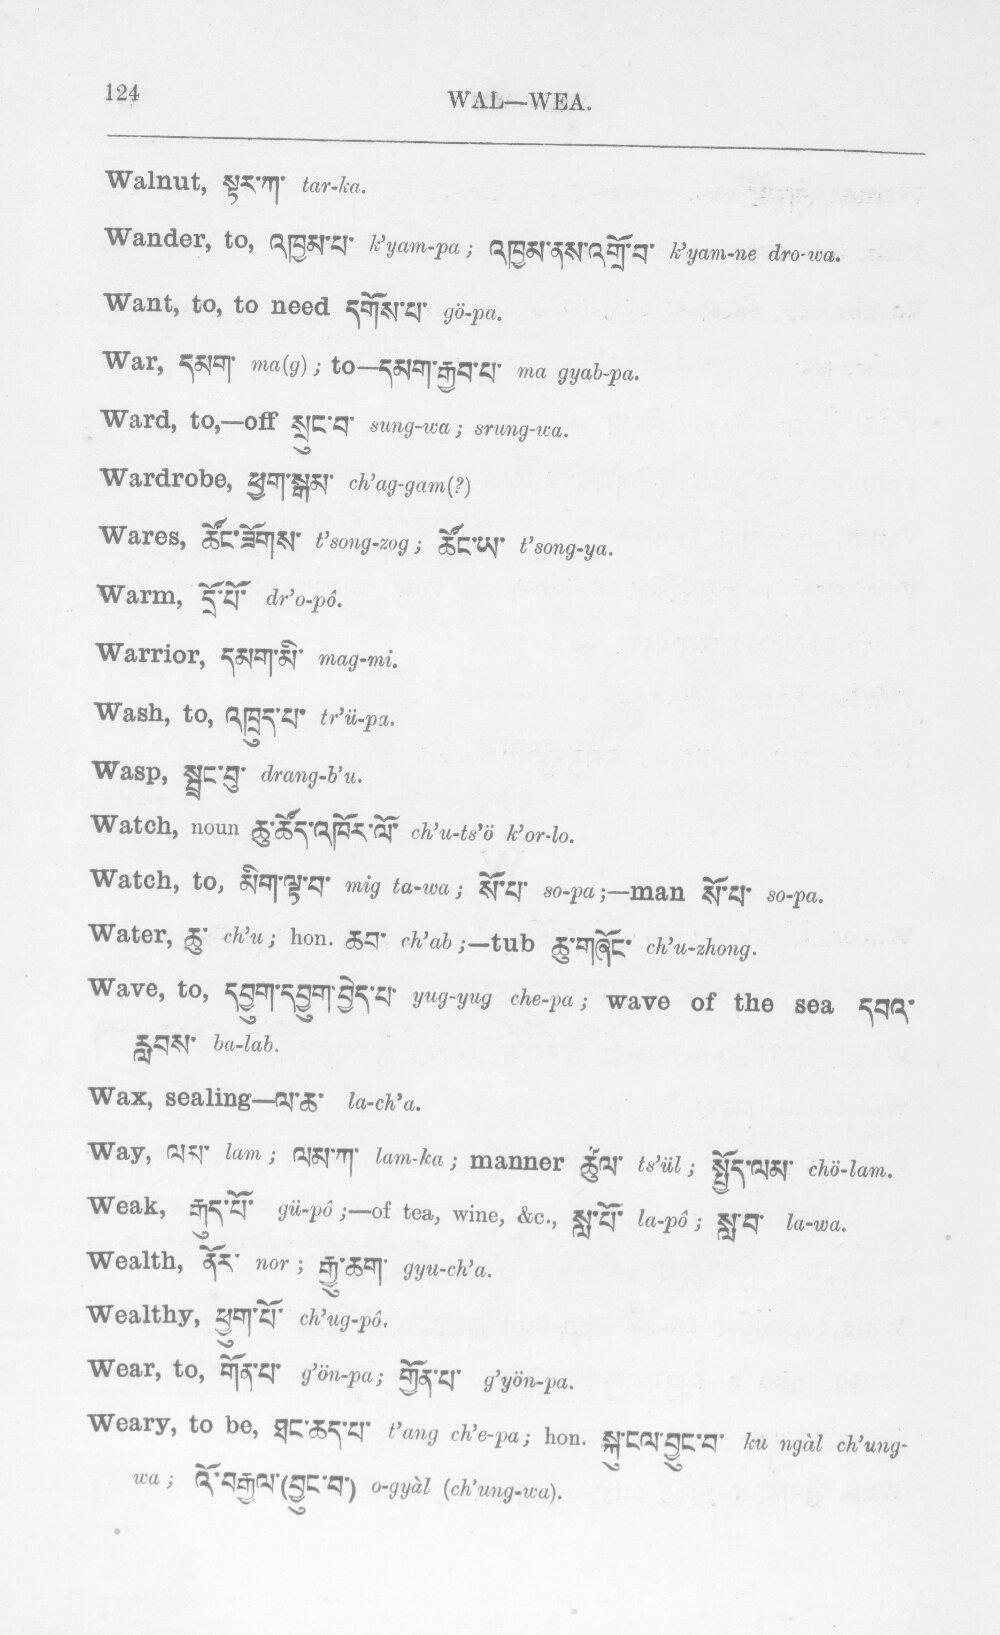 124
WAL—WEA.
Walnut, སྟར་ཀ་ tar-ka.
Wander, to, འཁྱམ་པ་ k’yam-pa; འཁྱམ་ནས་འགྲོ་བ་ k’yam-ne dro-wa.
Want, to, to need དགོས་པ་ gö-pa.
War, དམག་ ma(g); to—དམག་རྒྱབ་པ་ ma gyab-pa.
Ward, to,—off སྲུང་བ་ sung-wa; srung-wa.
Wardrobe, ཕྱག་སྒམ་ ch’ag-gam(?)
Wares, ཚོང་ཟོགས་ t’song-zog; ཚོང་ཡ་ t’song-ya.
Warm, དྲོ་པོ་ dr’o-pô.
Warrior, དམག་མི་ mag-mi.
Wash, to, འཁྲུད་པ་ tr’ü-pa.
Wasp, སྦྲང་བུ་ drang-b’u.
Watch, noun ཆུ་ཚོད་འཁོར་ལོ་ ch’u-ts’ö k’or-lo.
Watch, to, མིག་ལྟ་བ་ mig ta-wa; སོ་པ་ so-pa;—man སོ་པ་ so-pa.
Water, ཆུ་ ch’u; hon. ཆབ་ ch’ab;—tub ཆུ་གཞོང་ ch’u-zhong.
Wave, to, དབྱུག་དབྱུག་བྱེད་པ་ yug-yug che-pa; wave of the sea དབའ་
རླབས་ ba-lab.
Wax, sealing—ལ་ཆ་ la-ch’a.
Way, ལམ་ lam; ལམ་ཀ་ lam-ka; manner ཚུལ་ ts’ül; སྤྱོད་ལམ་ chö-lam.
Weak, རྒུད་པོ་ gü-pô;—of tea, wine, &c., སླ་པོ་ la-pô; སླ་བ་ la-wa.
Wealth, ནོར་ nor; རྒྱུ་ཆག་ gyu-ch’a.
Wealthy, ཕྱུག་པོ་ ch’ug-pô.
Wear, to, གོན་པ་ g’ön-pa; གྱོན་པ་ g’yön-pa.
Weary, to be, ཐང་ཆད་པ་ t’ang ch’e-pa; hon. སྐུ་ངལ་བྱུང་བ་ ku ngàl ch’ung-
wa; འོ་བརྒྱལ་(བྱུང་བ་) o-gyàl (ch’ung-wa).